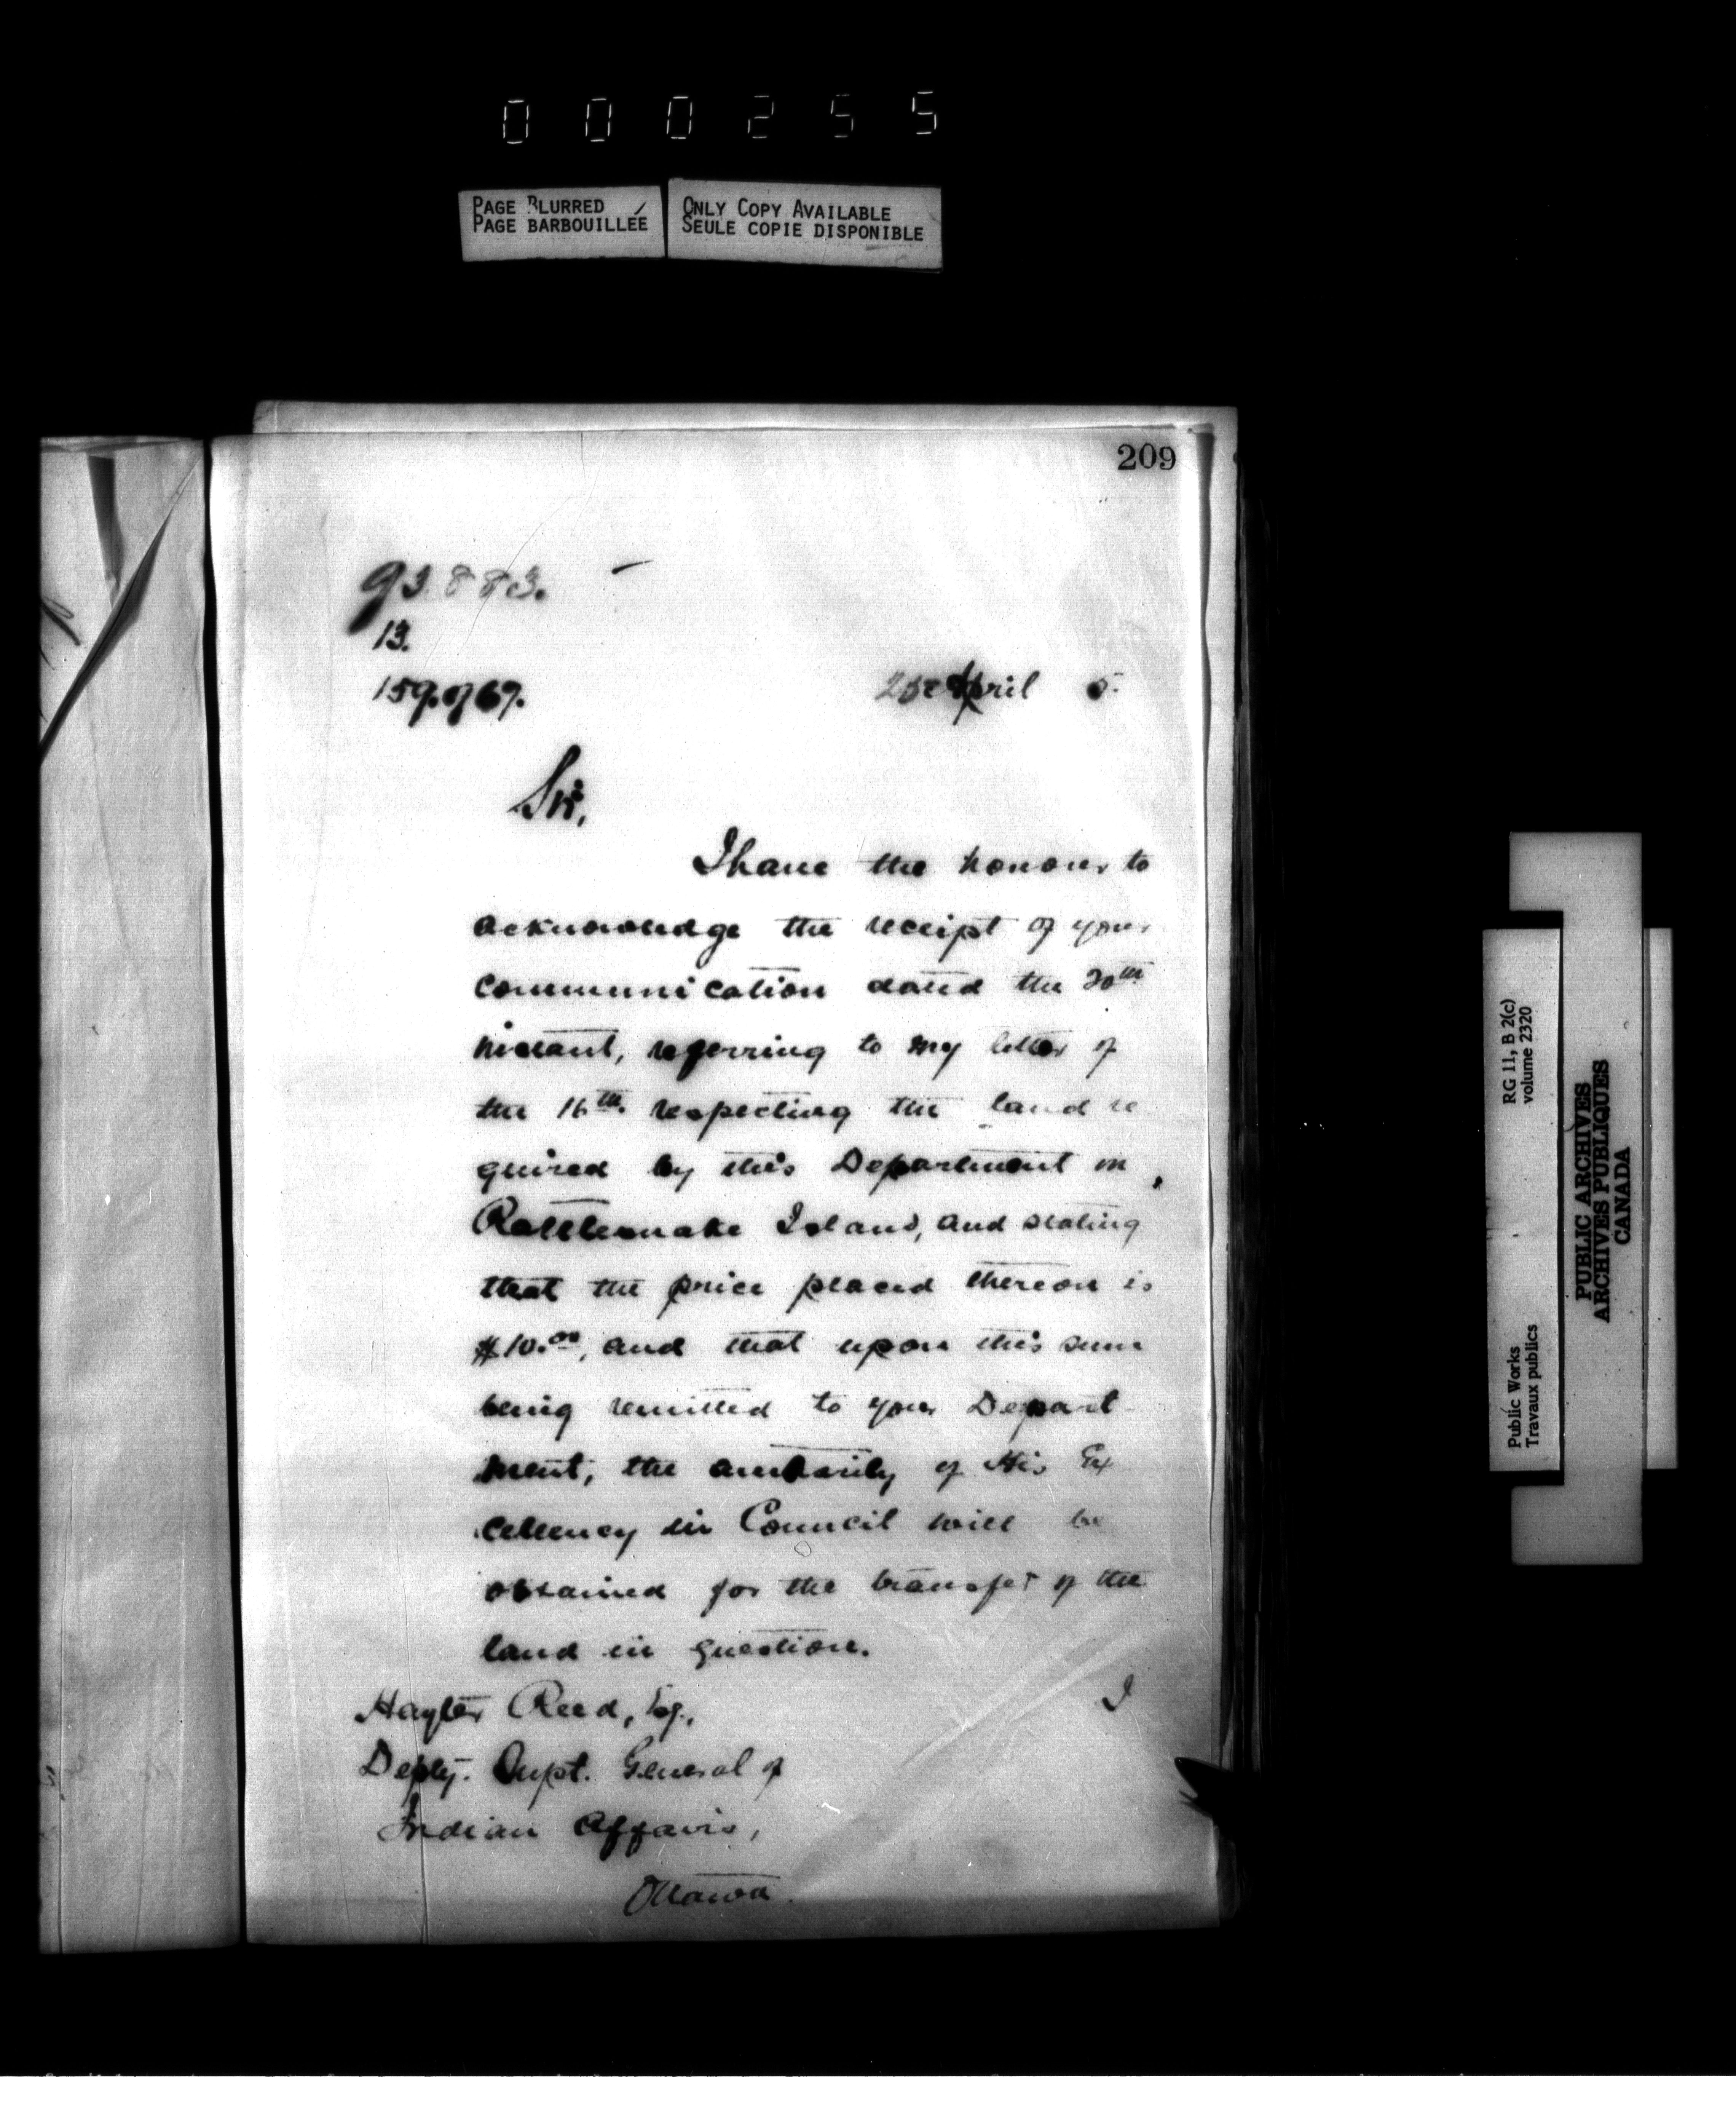 000255
PAGE BLURRED
PAGE BARBOUILLÉE
ONLY COPY AVAILABLE
SEULE COPIE DISPONIBLE
209
93.883.
13.
159. of 67.
April 5.
Sir,
I have the honour to
acknowledge the receipt of your
communication dated the 20th
instant, referring to my letter of
the 16th. respecting the land re
quired by this Department on
Rattlesnake Island, and stating
that the price placed thereon is
$10.00, and that upon this sum
being remitted to your Depart-
ment, the authority of His Ex
cellency in Council will be
obtained for the transfer of the
land in question.
I
Hayter Reed, Esq.,
Deply. Supt. General of
Indian Affairs,
Ottawa.
RG 11, B 2(c)
volume 2320
Public Works
Travaux publics
PUBLIC ARCHIVES
ARCHIVES PUBLIQUES
CANADA